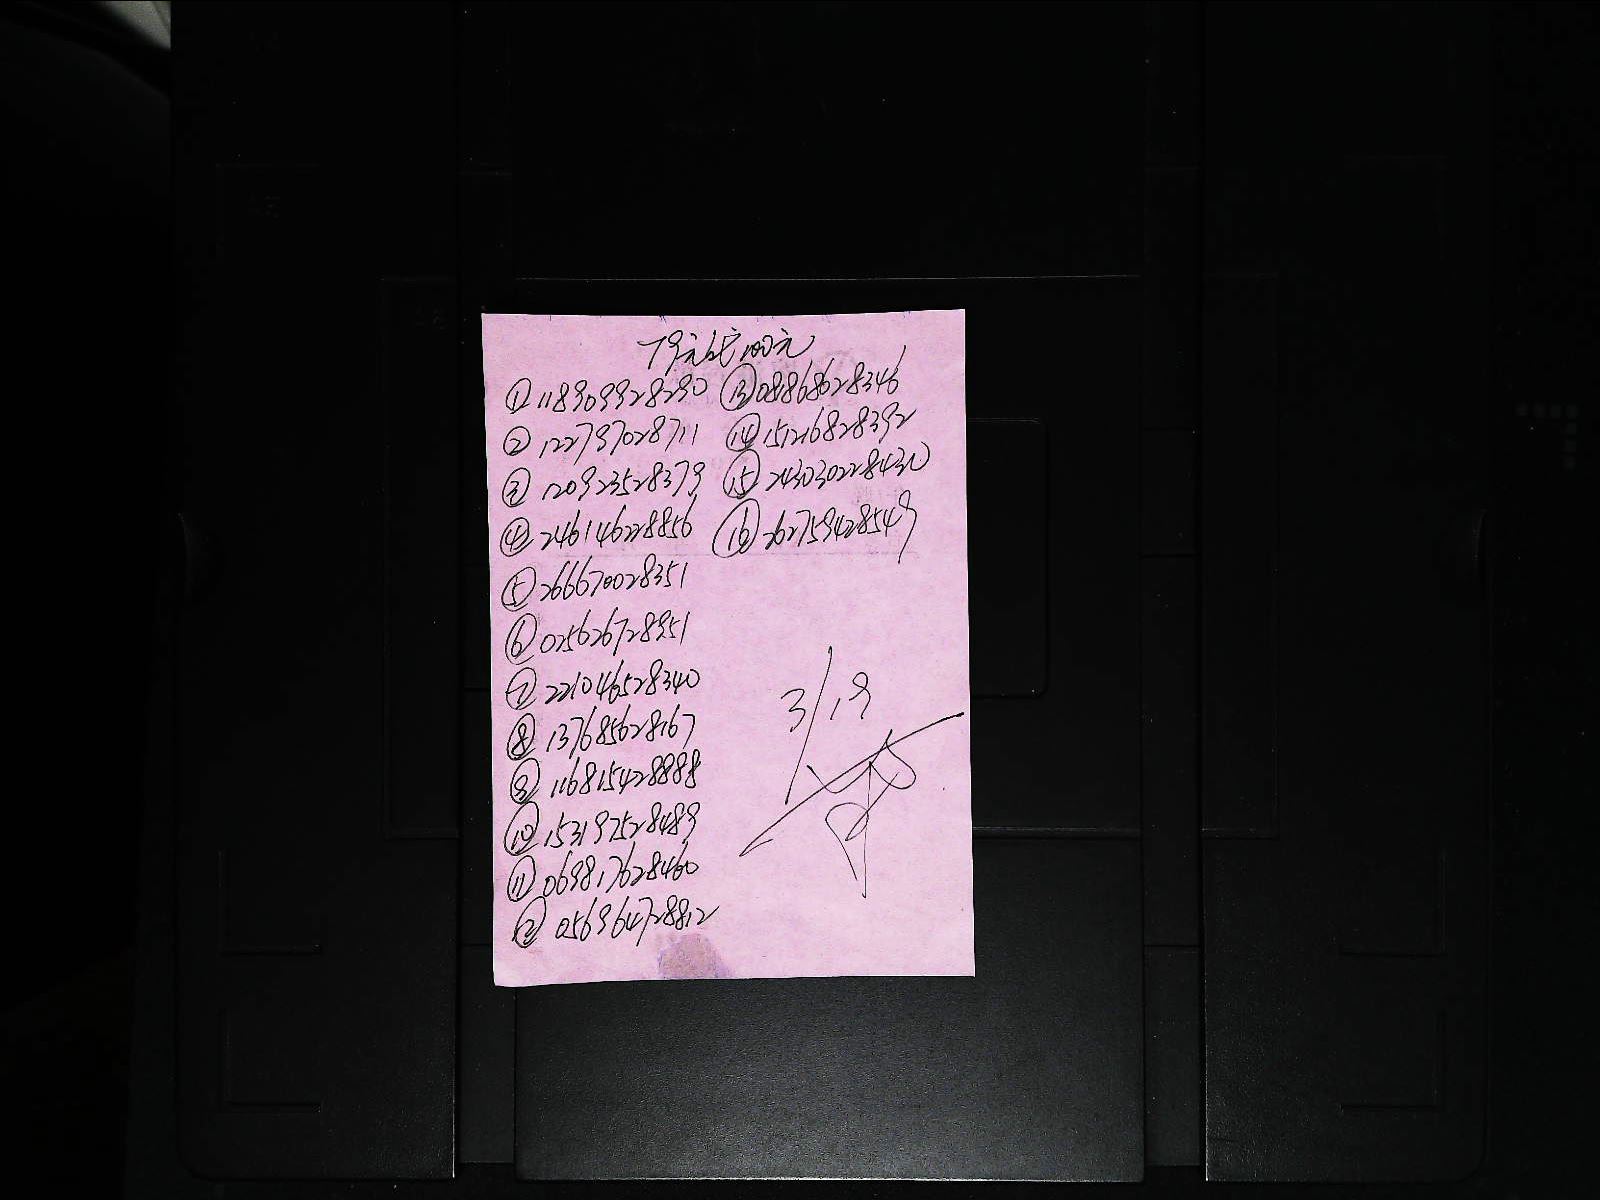 79元代100元
① 118909928290
② 122797028711
③ 120923528379
④ 246146228856
⑤ 266670028351
⑥ 025626728951
⑦ 221046528340
⑧ 137685628167
⑨ 116815428888
⑩ 153197528489
⑪ 069817628460
⑫ 056964728812
⑬ 081868628346
⑭ 151216828392
⑮ 243030228430
⑯ 262759428549
3/19